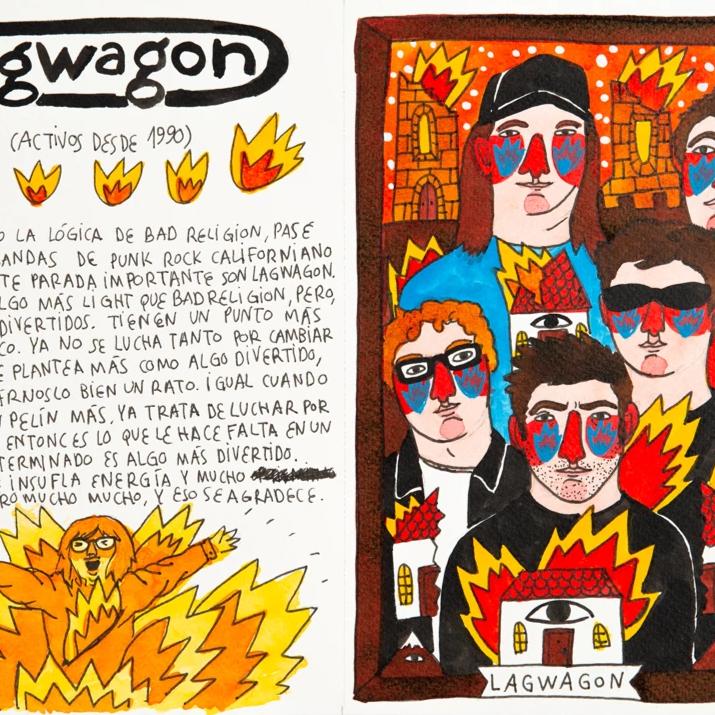 gwagon
(ACTIVOS DESDE 1990)
O LA LÓGICA DE BAD RELIGION, PASÉ
ANDAS DE PUNK ROCK CALIFORNIANO
TE PARADA IMPORTANTE SON LAGWAGON.
LGO MÁS LIGHT QUE BAD RELIGION, PERO,
DIVERTIDOS. TIENEN UN PUNTO MÁS
CO. YA NO SE LUCHA TANTO POR CAMBIAR
E PLANTEA MÁS COMO ALGO DIVERTIDO,
ÁRNOSLO BIEN UN RATO. IGUAL CUANDO
PELÍN MÁS, YA TRATA DE LUCHAR POR
ENTONCES LO QUE LE HACE FALTA EN UN
TERMINADO ES ALGO MÁS DIVERTIDO.
INSUFLA ENERGÍA Y MUCHO
RO MUCHO MUCHO, Y ESO SE AGRADECE.
LAGWAGON